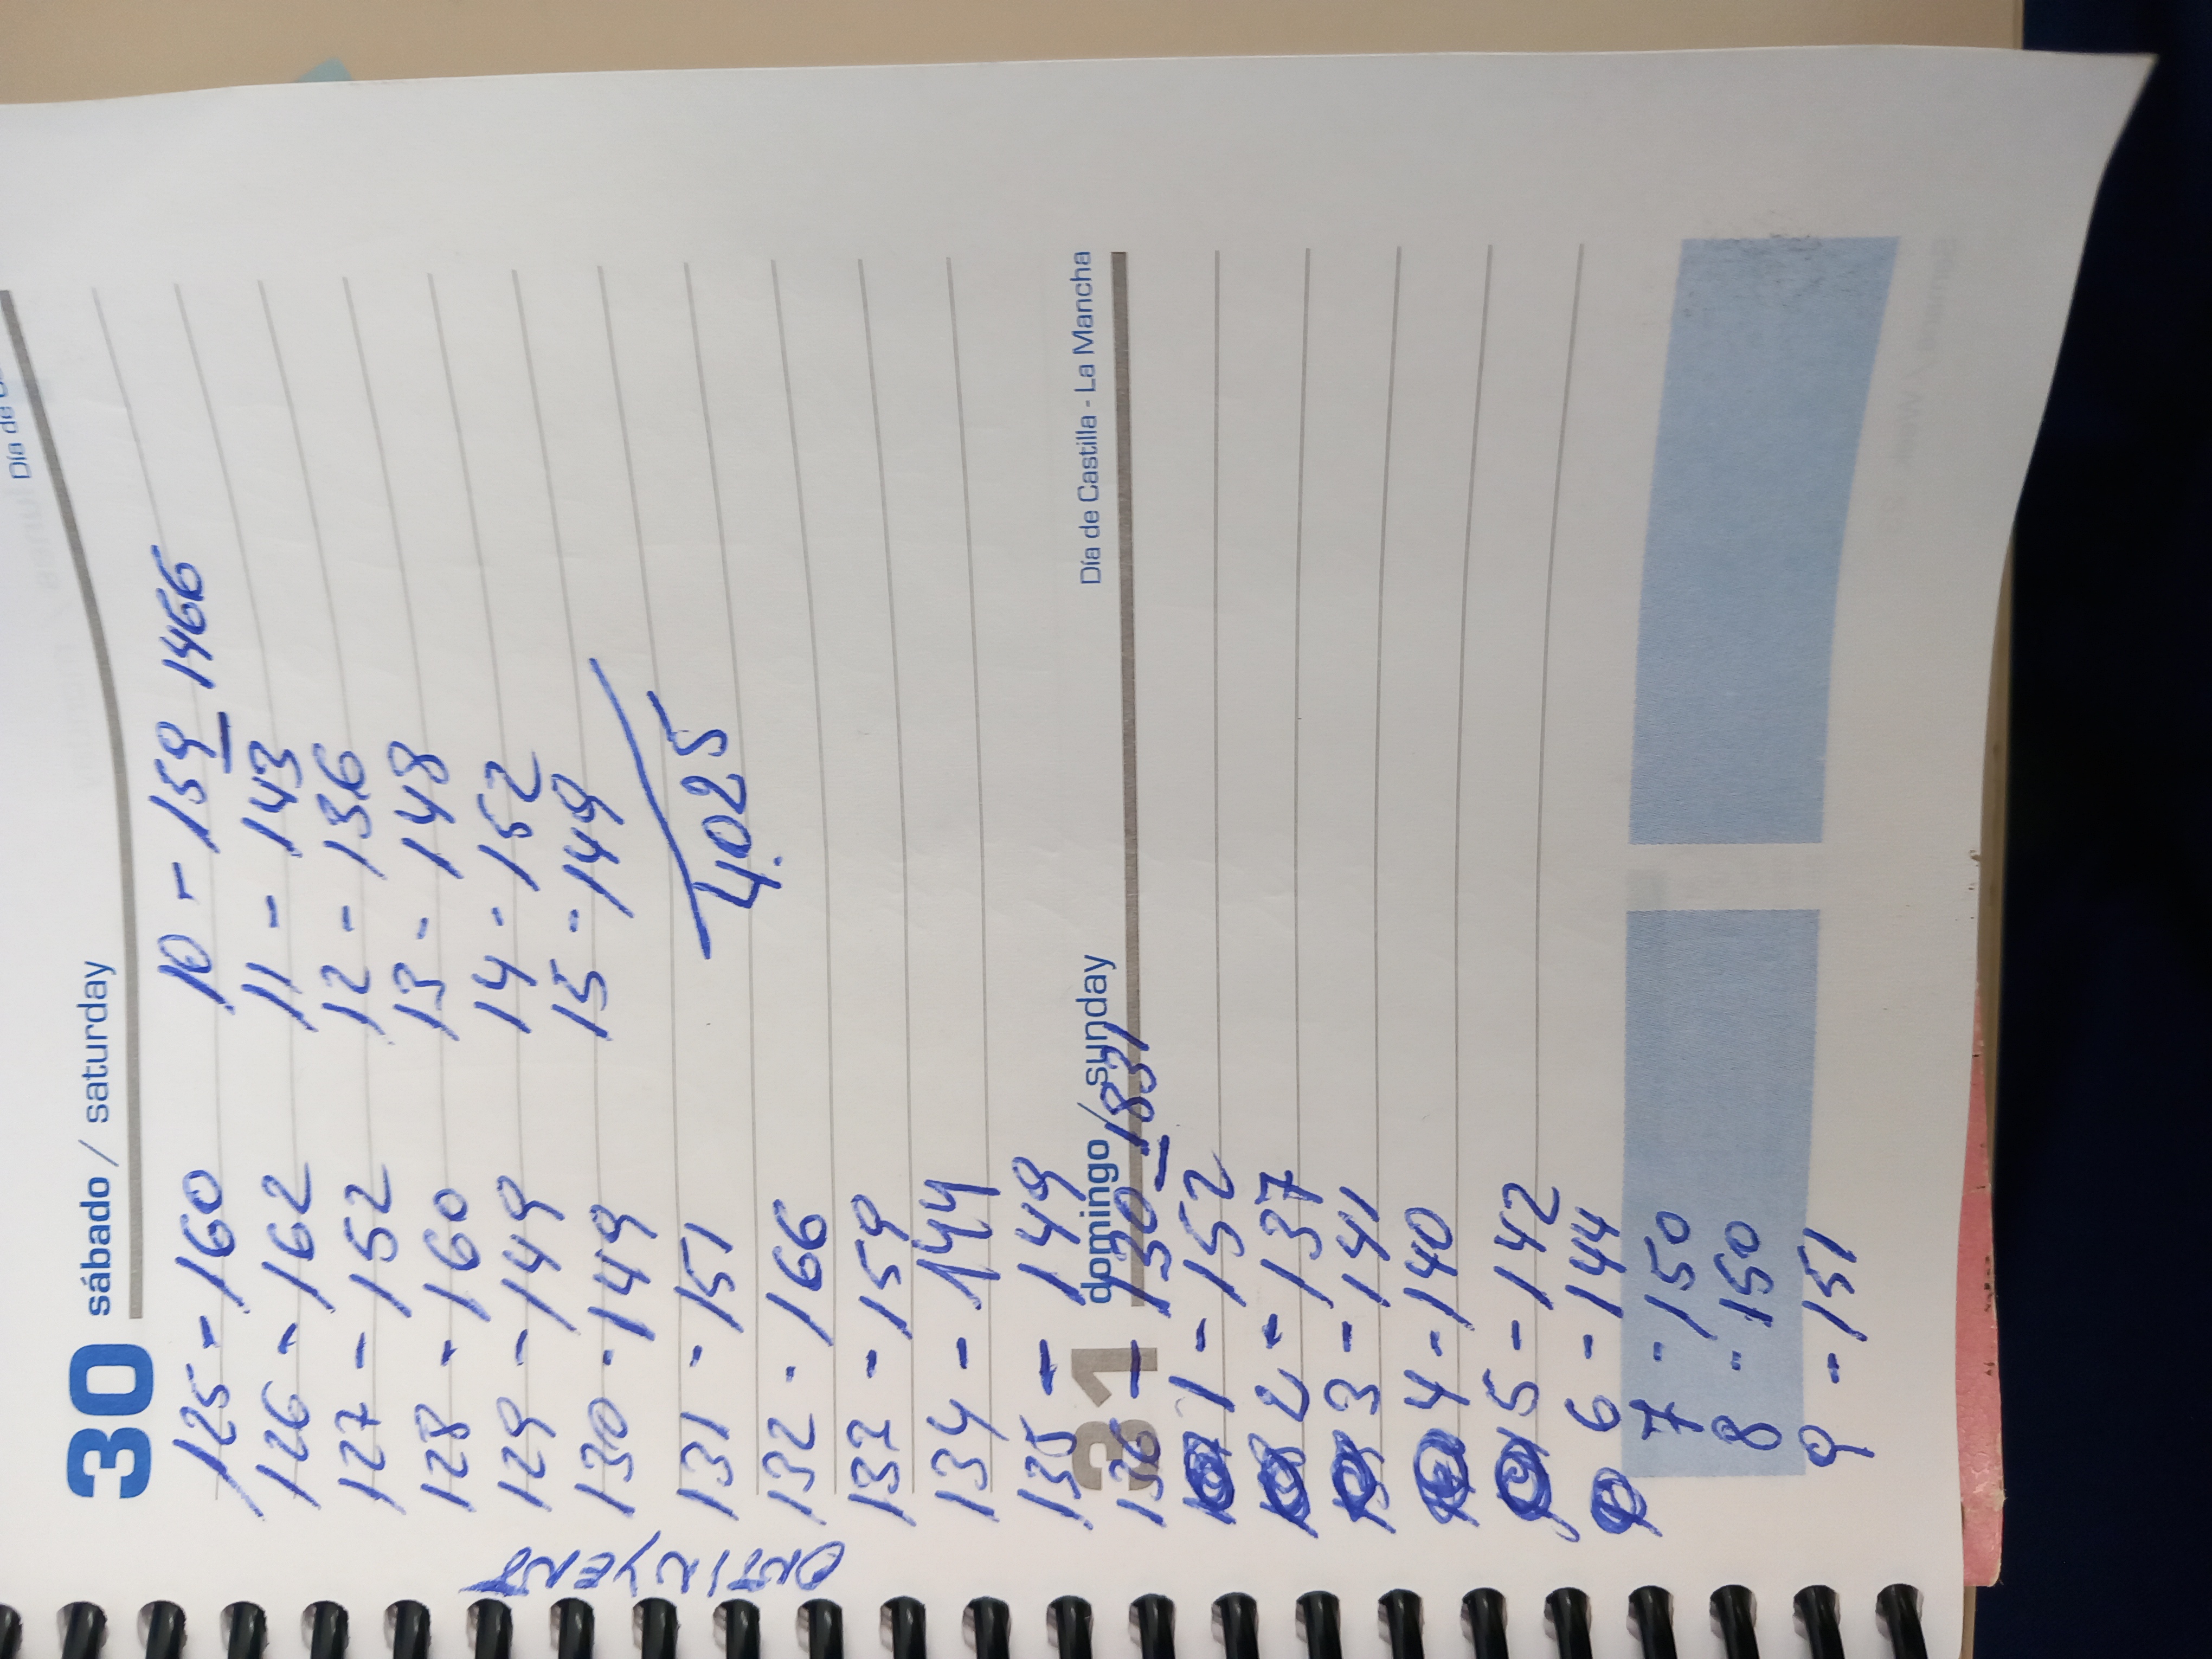 Día de
30 sábado / saturday
125 - 160
126 - 162
127 - 152
128 - 160
129 - 149
130 - 149
131 - 151
132 - 166
133 - 159
134 - 144
135 - 149
31 domingo / sunday
Día de Castilla - La Mancha
136 - 130 - 1831
1 - 152
2 - 137
3 - 141
4 - 140
5 - 142
6 - 144
7 - 150
8 - 150
9 - 151
10 - 159 - 1466
11 - 143
12 - 136
13 - 148
14 - 152
15 - 149
4.025